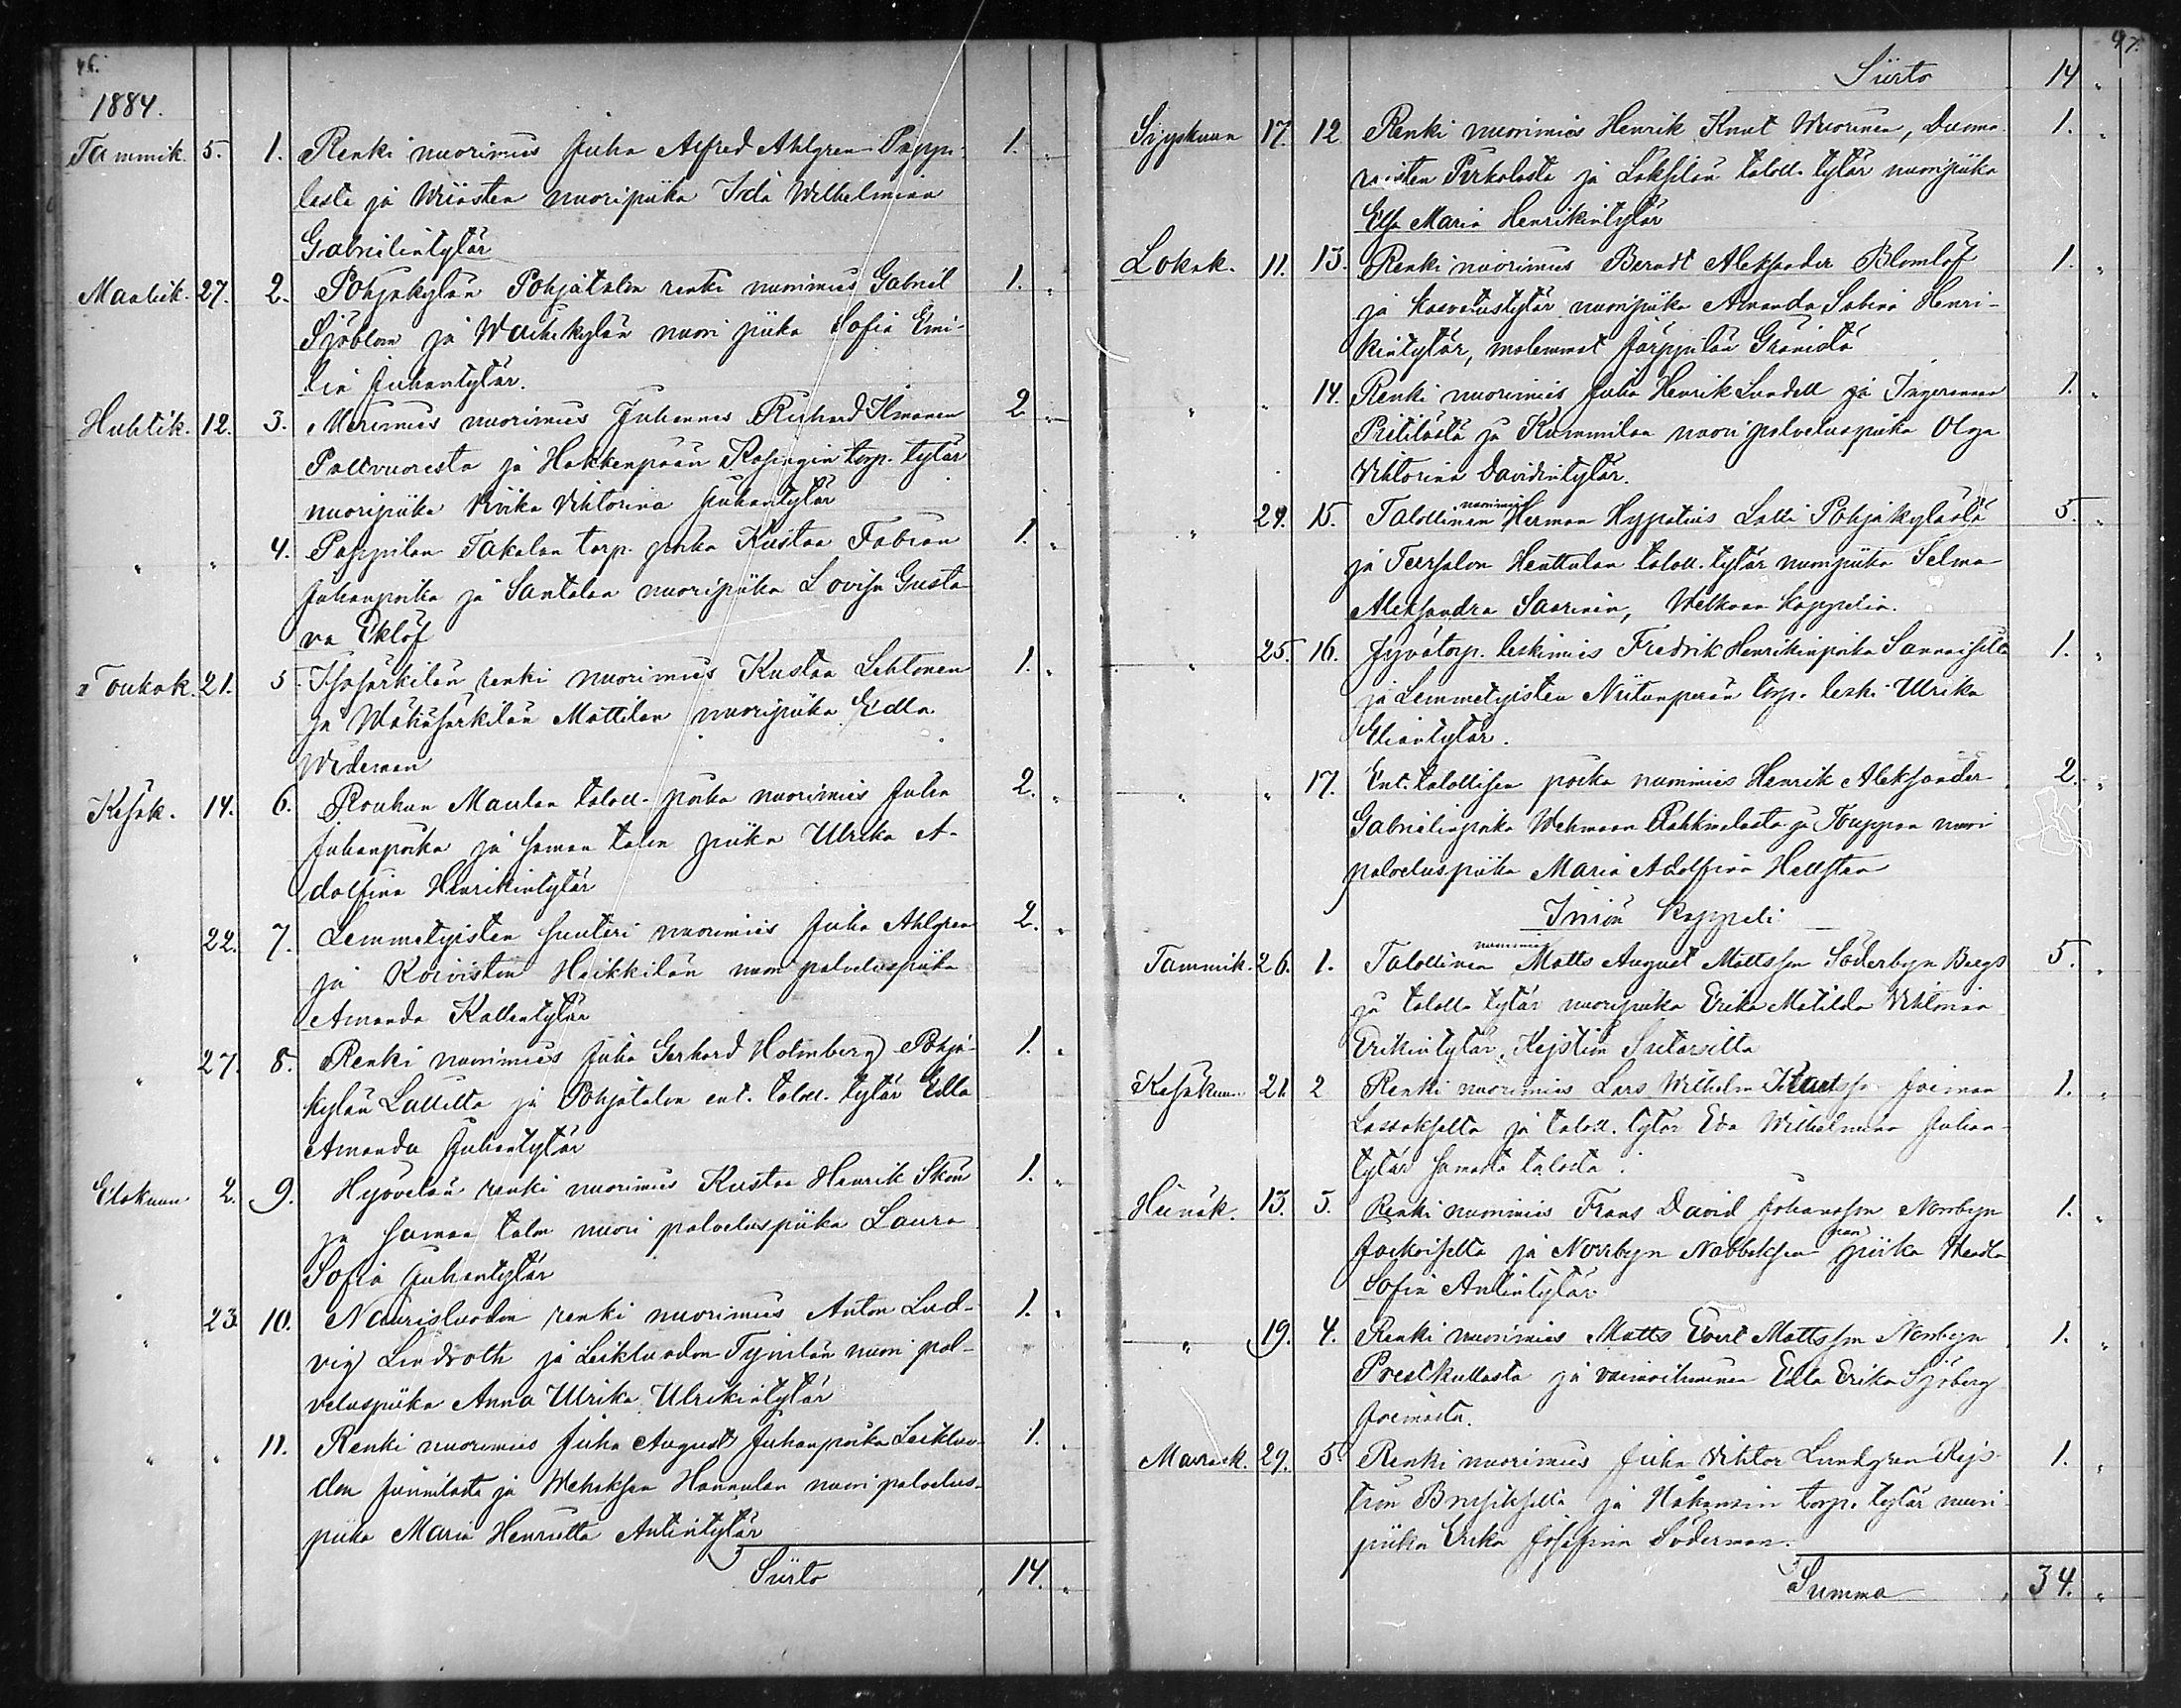 46.
1884.
Tammik. 5. 1. Renki nuorimies Juha Alfred Ahlgren Pappi- 1. "
lasta ja Wiiasten nuoripiika Ida Wilhelmina
Gabrielintytär
Maalisk. 27. 2. Pohjakylän Pohjatalon renki nuorimies Gabriel 1. "
Sjöblom ja Wanhakylän nuori piika Sofia Emi-
lia Juhantytär.
Huhtik. 12. 3. Merimies nuorimies Juhannes Richard Ilmanen 2 "
Paltvuoresta ja Hakkenpään torp. tytär
nuoripiika Viktorina Juhantytär
" " 4. Pappilan Takalan torp. poika Kustaa Fabian 1. "
Juhanpoika ja Santalan nuoripiika Lovisa Gusta
va Eklöf
Toukok. 21. 5. Isosärkilän renki nuorimies Kustaa Lehtonen 1. "
ja Wähäsärkilän Mattilan nuoripiika Edla
Wideman
Kesäk. 14. 6. Roukun Maulan taloll. poika nuorimies Juha 2. "
Juhanpoika ja saman talon piika Ulrika A-
dolfina Henrikintytär
" 22. 7. Lemmetyisten suuteri nuorimies Juha Ahlgren 2. "
ja Koiviston Heikkilän nuori palveluspiika
Amanda Kallentytär
" 27. 8. Renki nuorimies Juha Gerhard Holmberg Pohja- 1. "
kylän Lallilta ja Pohjatalon ent. taloll. tytär Edla
Amanda Juhantytär
Elokuun 2. 9. Hyövelän renki nuorimies Kustaa Henrik Skön 1. "
ja saman talon nuori palveluspiika Laura
Sofia Juhantytär
" 23. 10. Naurisluodon renki nuorimies Anton Lud- 1. "
vig Lindroth ja Leikluodon nuori pal-
veluspiika Anna Ulrika Ulrikintytär
" " 11. Renki nuorimies Juha August Juhanpoika Leikluo- 1. "
don Junnilasta ja Mehoksen Hannulan nuori palvelus-
piika Maria Henrietta Antintytär
Siirto 14. "
47.
Siirto 14 "
Syyskuun 17. 12 Renki nuorimies Henrik Knut Wuorinen, 1. "
Pirkolasta ja taloll. tytär nuoripiika
Elsa Maria Henrikintytär
Lokak. 11. 13. Renki nuorimies Berndt Aleksander Blomlöf 1. "
ja kasvatustytär nuoripiika Amanda Sabina Henri-
kintytär, molemmat Järppilän
" " 14. Renki nuorimies Juha Henrik Lundell ja Ingerannan 1. "
Prittilästä ja Kummilan nuori palveluspiika Olga
Viktorina Davidintytär.
" 24. 15. Talollinen nuorimies Herman Hypatius Lalli Pohjakylästä 5. "
ja Teersalon Henttalan taloll. tytär nuoripiika Selma
Aleksandra Saarinen, Welkuan kappelia.
" 25. 16. Jyvätorp. leskimies Fredrik Henrikinpoika Sannaiselta 1. "
ja Lemmetyisten Niitunperän torp. leski Ulrika
Eliantytär.
" " 17. Ent. talollisen poika nuorimies Henrik Aleksander 2. "
Gabrielinpoika Wehmaan Rahkmalasta ja nuori
palveluspiika Maria Adolfina Hellsten
Iniön Kappeli
Tammik. 26. 1. Talollinen nuorimies Matts August Mattsson Söderbyn Bergs 5. "
ja taloll. tytär nuoripiika Erika Matilda Viktoria
Erikintytär, Kejstiön
Kesäkuun 21. 2 Renki nuorimies Lars Wilhelm Jvimaa 1. "
ja taloll. tytär Eva Wilhelmina Juhan-
tytär samasta talosta.
Heinäk. 13. 3. Renki nuorimies Frans David Johansson Norrbyn 1. "
ja Norrbyn piika
Sofia Antintytär
" 19. 4. Renki nuorimies Matts Evert Mattsson Norrbyn 1. "
Prestkullasta ja vaimoihminen Edla Erika Sjöberg
Jvimasta.
Marrask. 29. 5 Renki nuorimies Juha Viktor Lundgren Kejs- 1. "
tiön ja torp. tytär nuori-
piika Erika Josefina Söderman.
Summa 34. "